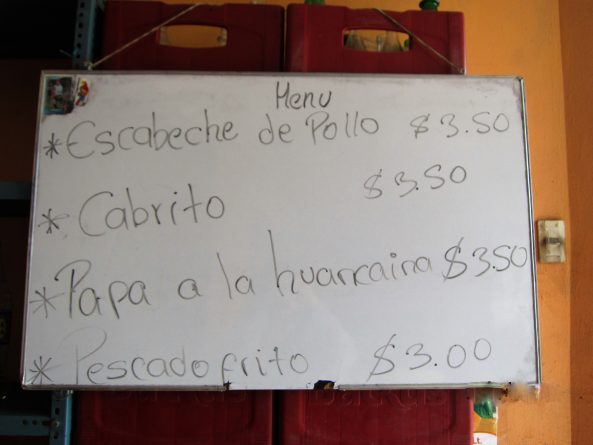 Menu
*Escabeche de Pollo $3.50
*Cabrito $3.50
*Papa a la huancaina $3.50
*Pescado frito $3.00